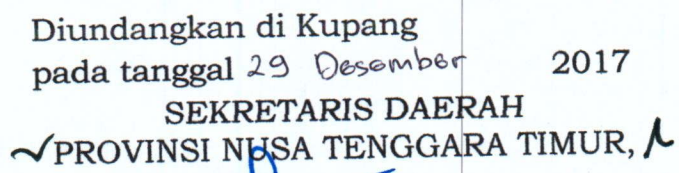 Diundangkan di Kupang
pada tanggal 29 Desember 2017
SEKRETARIS DAERAH
PROVINSI NUSA TENGGARA TIMUR,